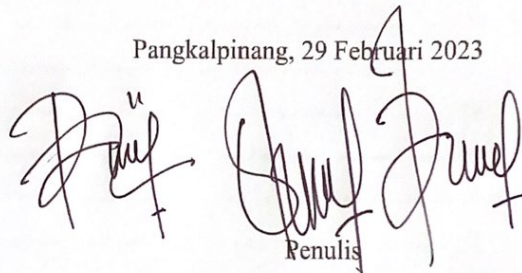 Pangkalpinang, 29 Februari 2023
Penulis